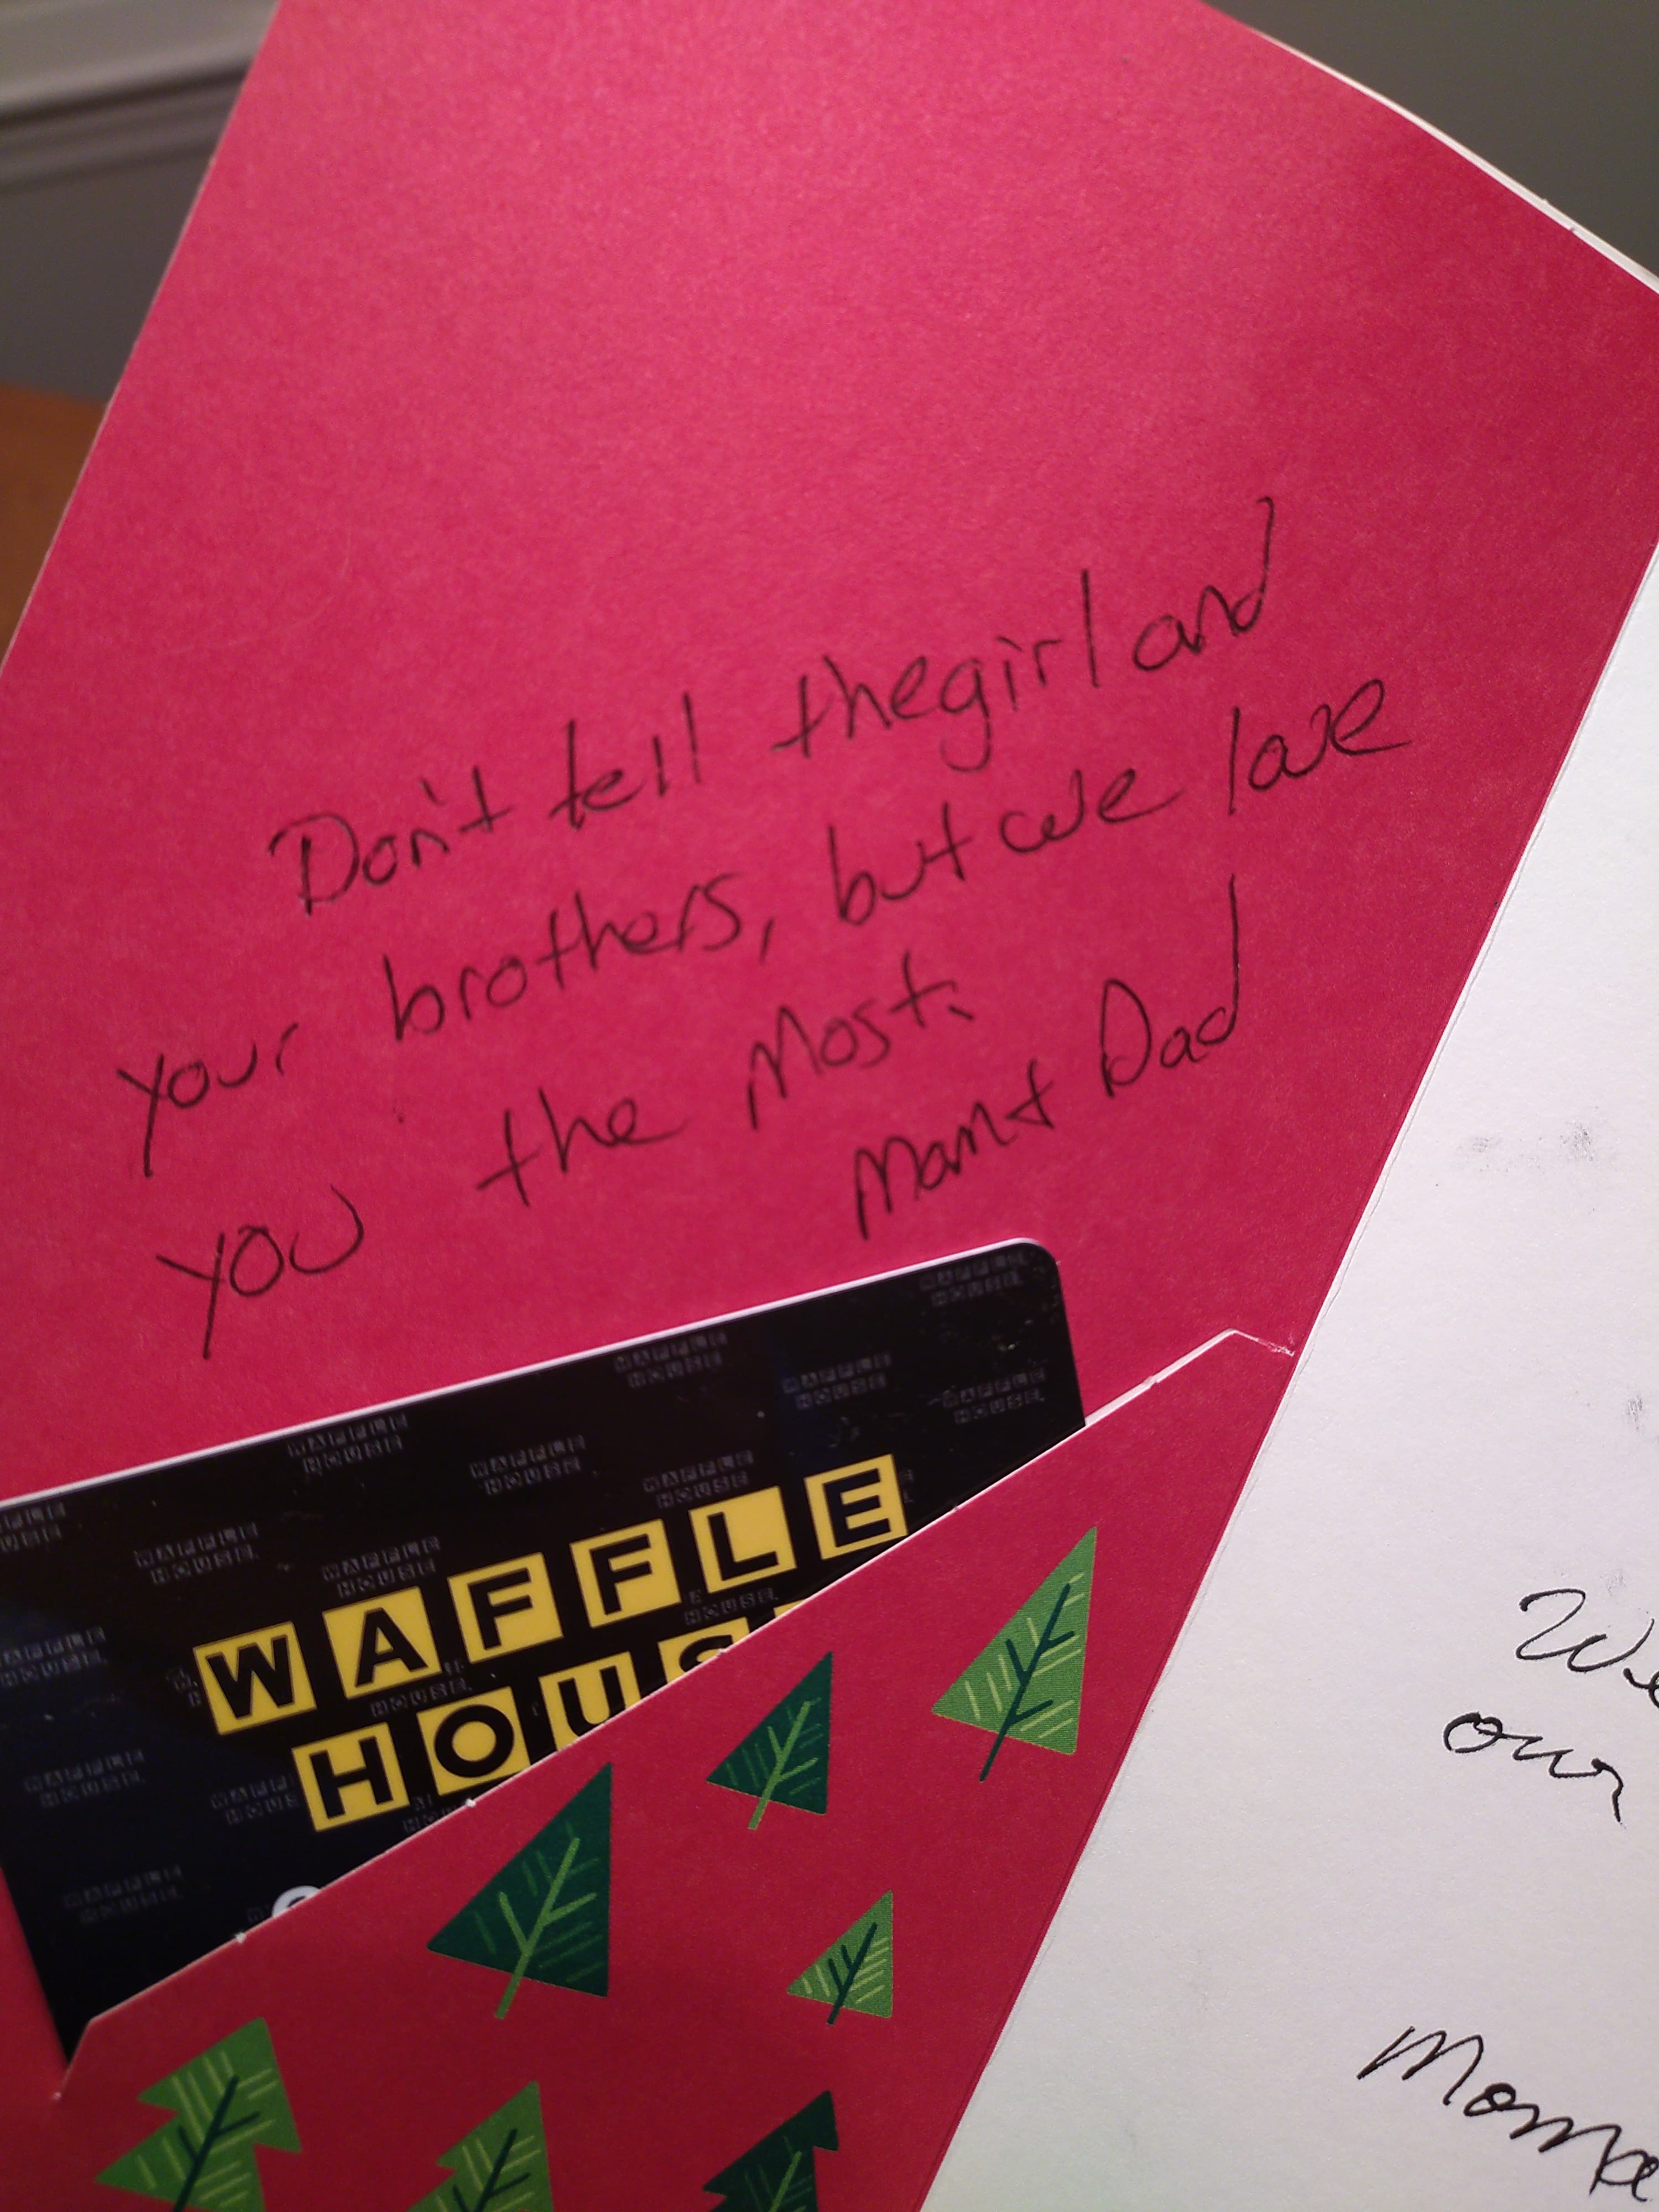 Don't tell the girl and
your brothers, but we love
you the Most.
Mom + Dad
WAFFLE
HOUSE
We
our
Mom